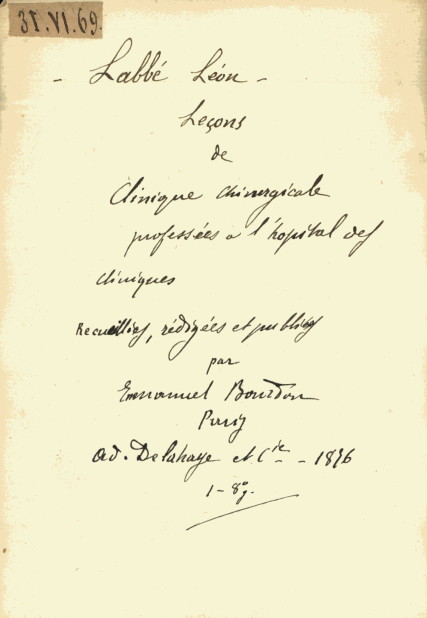 31.VI.69.
- Labbé Léon -
Leçons
de
Clinique chirurgicale
professées a l'hopital des
cliniques
Recueillies, rédigées et publiées
par
Emmanuel Bourdon
Paris
Ad. Delahaye et Cie - 1876
1 - 8º.